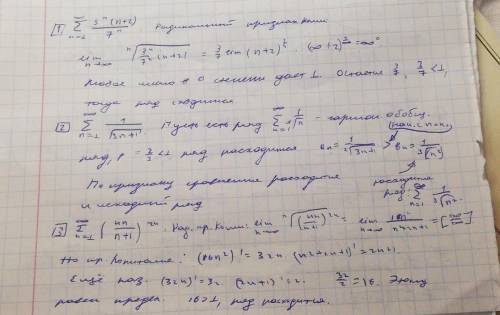 1 ∑ 3ⁿ(n+2)/7ⁿ Радикальный признак Коши
lim n→∞ ⁿ√(3ⁿ/7ⁿ (n+2)) = 3/7 lim (n+2)^(1/n) (∞+2) = ∞⁰
Любое число в 0 степени даёт 1. Остаётся 3/7, 3/7 < 1,
тогда ряд сходится
2 ∑ n=1 ∞ 1/√(3n+1) Пусть есть ряд ∑ n=1 ∞ 1/n
ряд, < 1 ряд расходится
По признаку сравнения расходится
и исходный ряд
расходится
ряд: ∑ n=1 ∞
3 ∑ n=1 ∞ (4n/(n+1))^(2n) Рад. пр. Коши: lim n→∞ ⁿ√((4n/(n+1))^(2n)) = lim n→∞ 16n²/(n²+2n+1) = [∞/∞]
По пр. Лопиталя: (16n²)' = 32n (n²+2n+1)' = 2n+1.
Ещё раз. (32n)' = 32. (2n+1)' = 2. 32/2 = 16. Этому
равен предел. 16 > 1, ряд расходится.